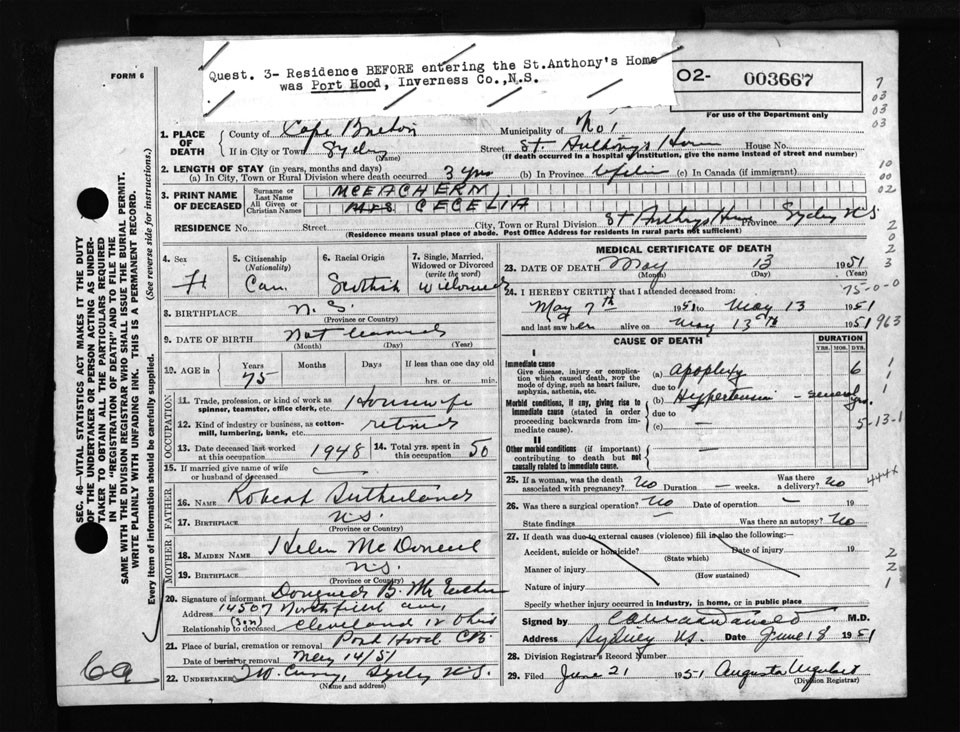 Quest. 3- Residence BEFORE entering the St.Anthony's Home
was Port Hood, Inverness Co.,N.S.
FORM 6
O2- 003667
For use of the Department only
7
03
03
03
1. PLACE OF DEATH County of Cape Breton Municipality of No 1
If in City or Town Sydney (Name) Street St Anthony's Home House No.
(If death occurred in a hospital or institution, give the name instead of street and number)
2. LENGTH OF STAY (in years, months and days)
(a) In City, Town or Rural Division where death occurred 3 yrs (b) In Province (c) In Canada (if immigrant)
10
00
02
3. PRINT NAME OF DECEASED Surname or Last Name MCEACHERN,
All Given or Christian Names MRS CECELIA
RESIDENCE No. Street City, Town or Rural Division St Anthonys Home Province Sydney N.S.
(Residence means usual place of abode. Post Office Address for residents in rural parts not sufficient)
4. Sex F
5. Citizenship (Nationality) Can.
6. Racial Origin Scottish
7. Single, Married, Widowed or Divorced (write the word) Widowed
8. BIRTHPLACE N.S.
(Province or Country)
9. DATE OF BIRTH Not learned
(Month) (Day) (Year)
10. AGE in Years 75 Months Days If less than one day old
hrs. or min.
OCCUPATION
11. Trade, profession, or kind of work as spinner, teamster, office clerk, etc. Housewife
12. Kind of industry or business, as cotton-mill, lumbering, bank, etc. retired
13. Date deceased last worked at this occupation 1948 14. Total yrs. spent in this occupation 50
15. If married give name of wife or husband of deceased
FATHER
16. NAME Robert Sutherland
17. BIRTHPLACE N.S.
(Province or Country)
MOTHER
18. MAIDEN NAME Helen
19. BIRTHPLACE N.S.
(Province or Country)
20. Signature of informant B.
Address 14507 Northfield ave,
Relationship to deceased (son) Cleveland 12 Ohio
21. Place of burial, cremation or removal Port Hood CB.
Date of burial or removal May 14/51
22. UNDERTAKER Sydney N.S.
(Name and address)
MEDICAL CERTIFICATE OF DEATH
23. DATE OF DEATH May 13 1951
(Month) (Day) (Year)
2
0
2
3
24. I HEREBY CERTIFY that I attended deceased from: 75-0-0
May 7th 1951 to May 13 1951
and last saw her alive on May 13th 1951 963
CAUSE OF DEATH DURATION
YRS. MOS. DYS.
I
Immediate cause
Give disease, injury or complication which caused death, NOT the mode of dying, such as heart failure, asphyxia, asthenia, etc.
(a) Apoplexy 6
due to
Morbid conditions, if any, giving rise to immediate cause (stated in order proceeding backwards from immediate cause).
(b) Hypertension - several yrs.
due to
(c) —
1
1
5-13-1
II
Other morbid conditions (if important) contributing to death but not causally related to immediate cause.
25. If a woman, was the death associated with pregnancy? No Duration — weeks. Was there a delivery? No
444X
26. Was there a surgical operation? No Date of operation — 19
State findings Was there an autopsy? No
27. If death was due to external causes (violence) fill in also the following:—
Accident, suicide or homicide? (State which) Date of injury 19
Manner of injury (How sustained)
Nature of injury
2
2
1
Specify whether injury occurred in industry, in home, or in public place
Signed by M.D.
Address Sydney N.S. Date June 18 1951
28. Division Registrar's Record Number
29. Filed June 21 1951 Augusta Urquhart
(Division Registrar)
SEC. 46—VITAL STATISTICS ACT MAKES IT THE DUTY
OF THE UNDERTAKER OR PERSON ACTING AS UNDERTAKER TO OBTAIN ALL THE PARTICULARS REQUIRED
IN THE "REGISTRATION OF DEATH" AND TO FILE THE
SAME WITH THE DIVISION REGISTRAR WHO SHALL ISSUE THE BURIAL PERMIT.
WRITE PLAINLY WITH UNFADING INK. THIS IS A PERMANENT RECORD.
Every item of information should be carefully supplied. (See reverse side for instructions.)
6a